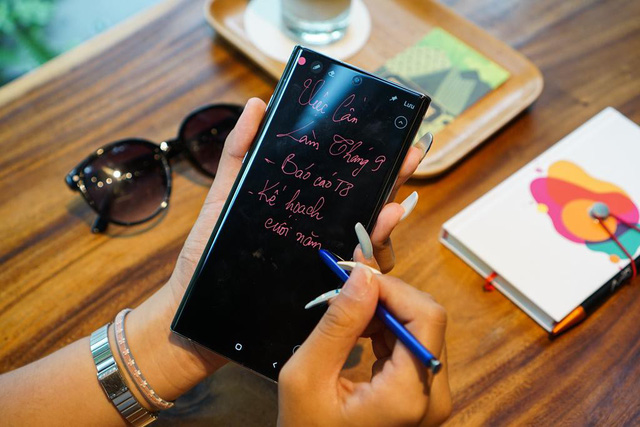 Lưu
Việc Cần
Làm Tháng 9
- Báo cáo T8
- Kế hoạch
cuối năm